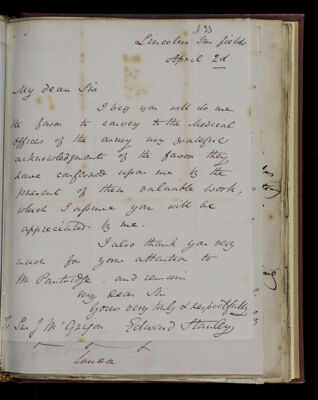 33
Lincolns Inn fields
April 2d
My dear Sir
I beg you will do me
the favor to convey to the Medical
Officers of the army my grateful
acknowledgments of the favor they
have confirmed upon me by the
present of their valuable work,
which I assure you will be
appreciated by me.
I also thank you very
much for your attention to
Mr Partridge, and remain
My dear Sir
Yours very truly & respectfully
Edward Stanley
To Sir J McGrigor
London